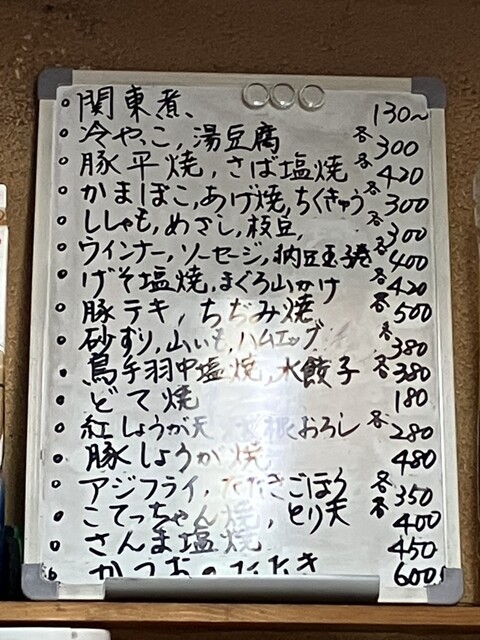 関東煮、 130〜
冷やっこ, 湯豆腐 各300
豚平焼, さば塩焼 各420
かまぼこ, あげ焼, ちくきゅう 各300
ししゃも, めざし, 枝豆, 各300
ウインナー, ソーセージ, 納豆玉子巻 各400
げそ塩焼, まぐろ山かけ 各420
豚テキ, ちぢみ焼 各500
砂ずり, 山いも, ハムエッグ 各380
鳥手羽中塩焼, 水餃子 各380
どて焼 180
紅しょうが天, 大根おろし 各280
豚しょうが焼 480
アジフライ, たたきごぼう 各350
こてっちゃん焼, とり天 各400
さんま塩焼 450
かつおのたたき 600